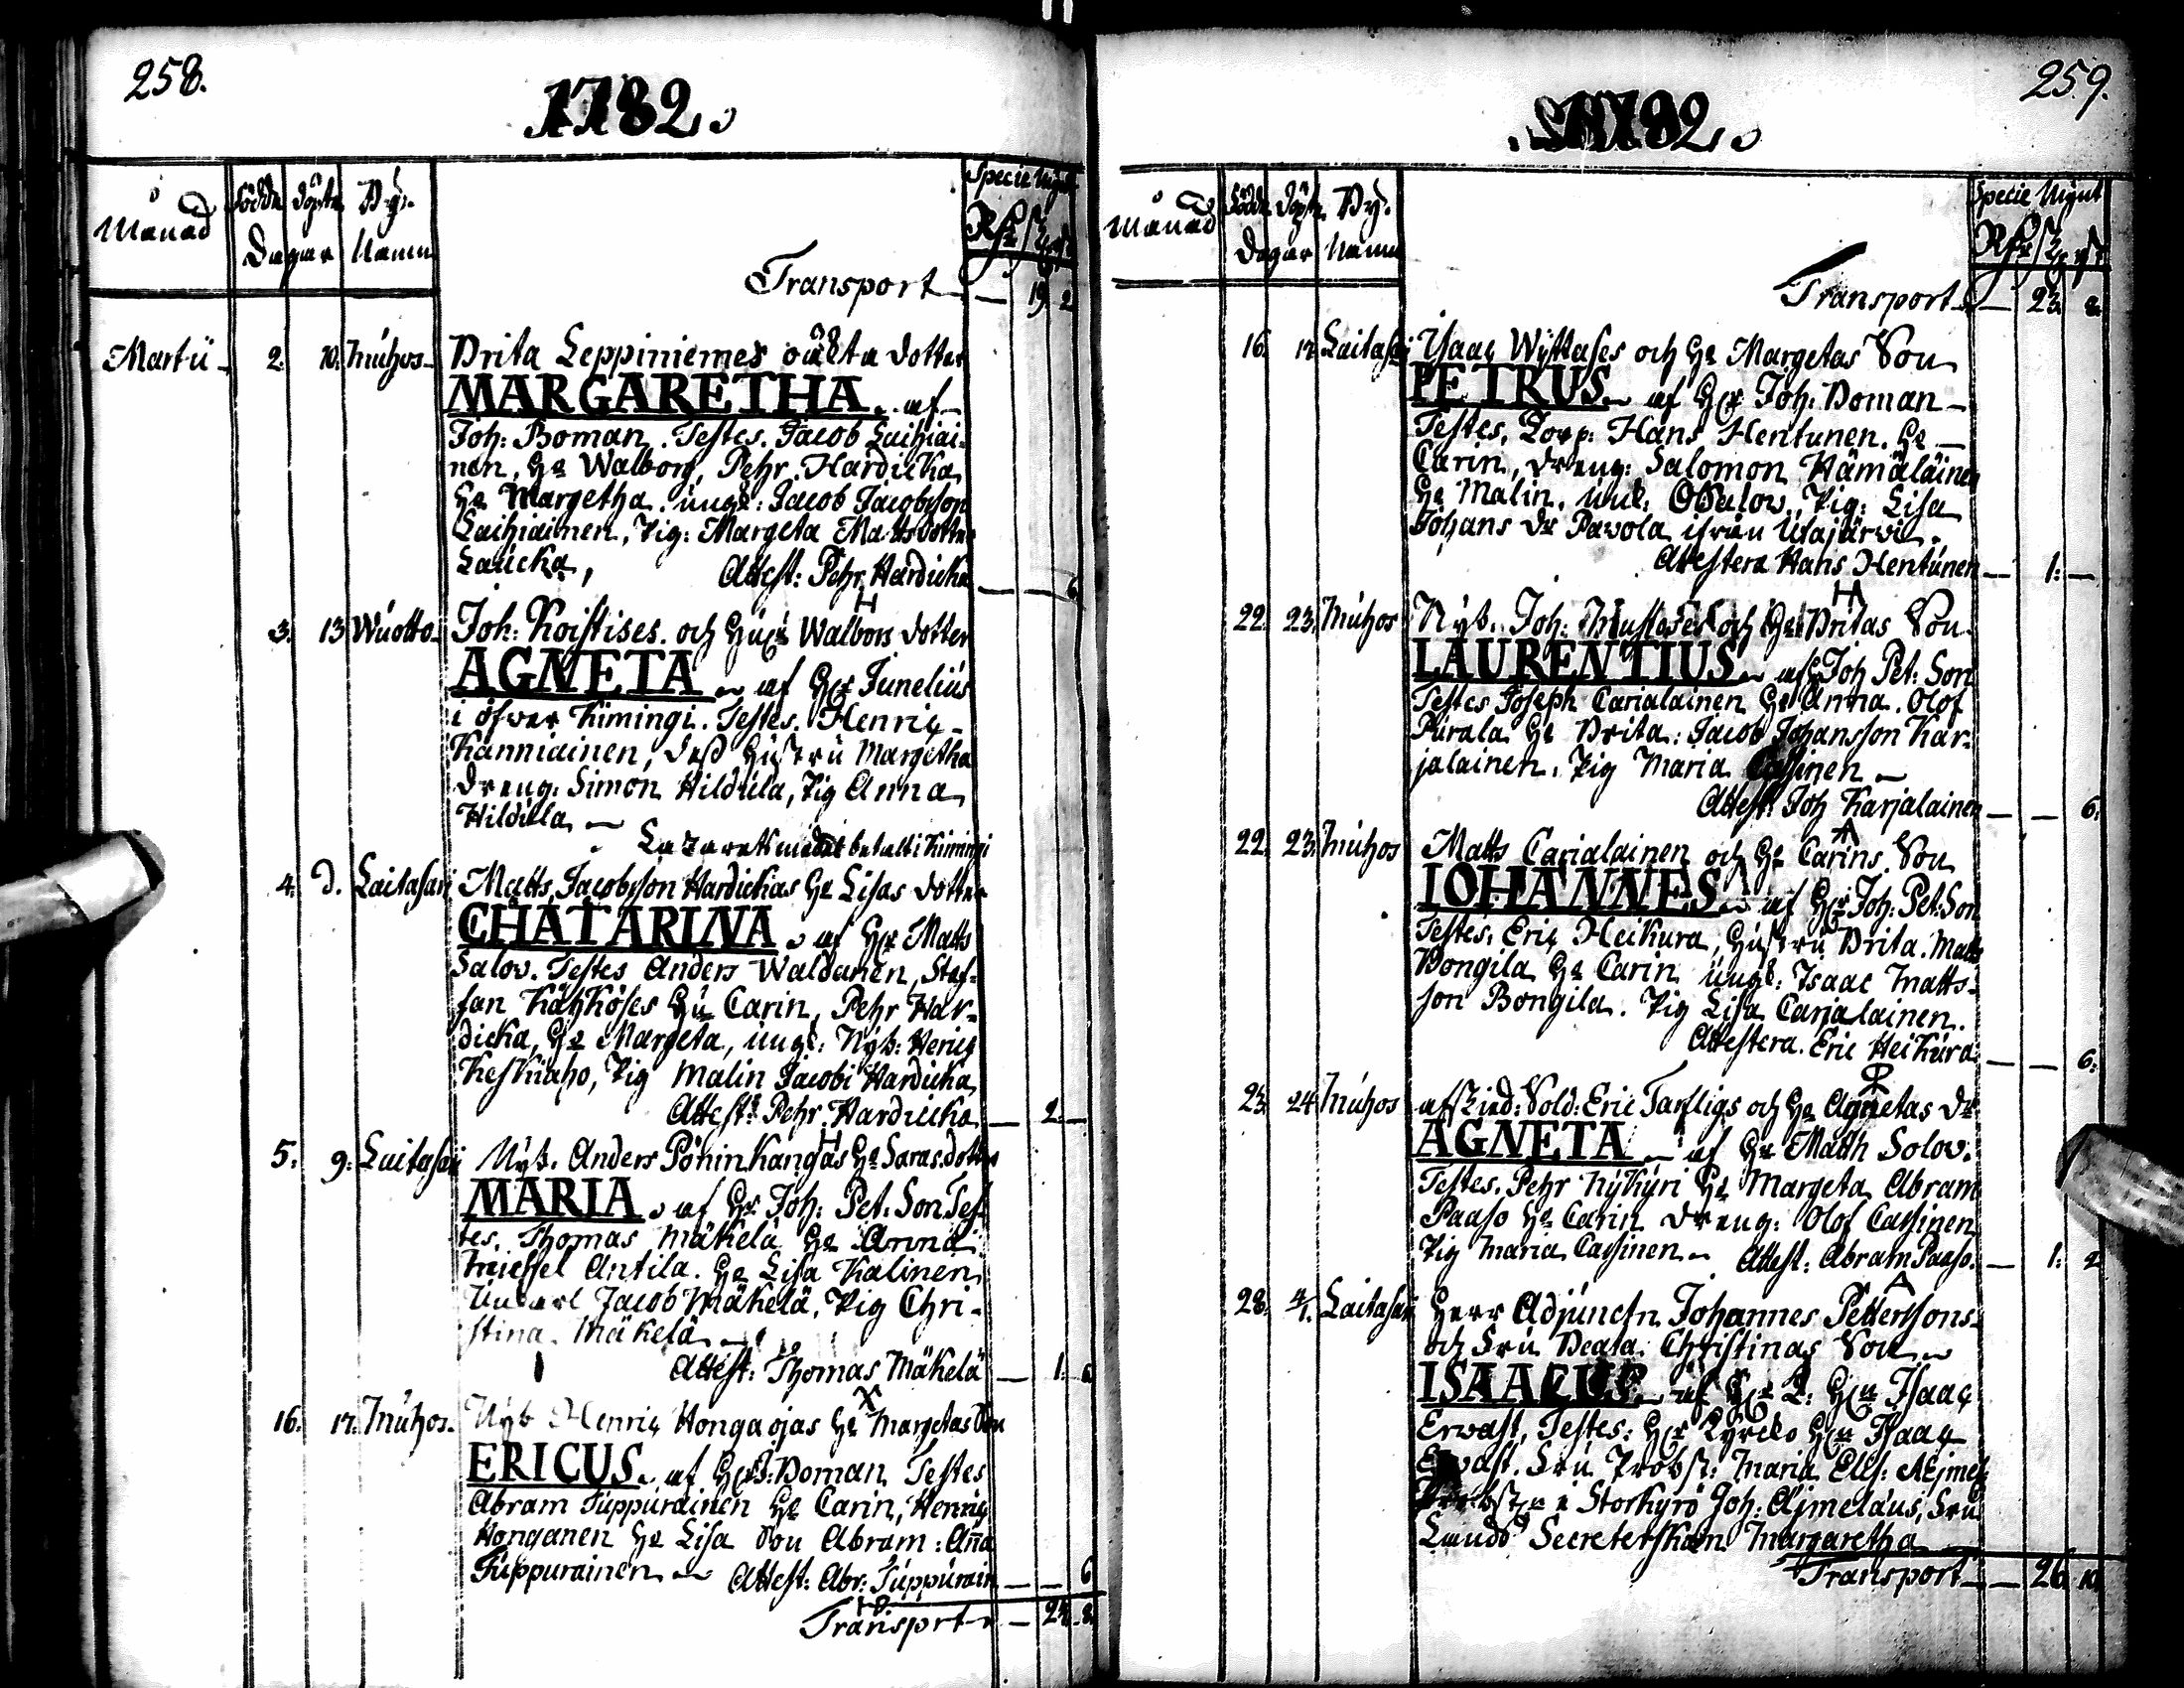 258.
1782.
Månad
Födde
Döpte
By.
Specie Mynt
Dagar
Namn
Rdr ß rst
Transport — 19. 2
Martii 2. 10. Muhos Brita Leppiniemes oäkta dotter
MARGARETHA af
Joh: Boman. Testes. Jacob Laihiai-
nen, Hu Walborg, Pehr Hardicka
Hu Margetha. ungk: Jacob Jacobsson
Laihiainen, Pig: Margeta Mattsdotter
Laucka, Attest: Pehr Hardicka — 6
H
3. 13 Wuotto Joh: Koistises och Hustrus Walbors dotter
AGNETA af Her Junelius
i öfver Kimingi. Testes. Henric
Kanniainen, dess Hustru Margetha
Dreng: Simon Hildula, Pig Anna
Hildula
Lazarettmedel betalt i Kimingi
4. d. Laitasari Matts Jacobsson Hardickas Hu Lisas dotter
CHATARINA af Her Matts
Salov. Testes Anders Waldanen, Staf-
fan Käyhköses Hu Carin, Pehr Har-
dicka, Hu Margeta, ungk: Nyb: Heric
Keskiaho, Pig Malin Jacobi Hardicka
Attest: Pehr Hardicka — 2. —
H
5. 9. Laitasari Nyb. Anders Pöninkangas Hu Saras dotter
MARIA af Hr Joh: Pet: Son Tes-
tes. Thomas Mäkelä Hu Anna
Michel Antila. Hu Lisa Kalinen
Ungkarl Jacob Mäkelä, Pig Chri-
stina Mäkelä
Attest: Thomas Mäkelä — 1. 6.
X
16. 17. Muhos. Nyb Henric Hongaojas Hu Margetas Son
ERICUS af Her J: Boman Testes
Abram Tuppurainen Hu Carin, Henric
Honganen Hu Lisa Son Abram: Aña
Tuppurainen Attest: Abr: Tuppurain — — 6
Transport — 24. 8.
259.
1782.
Månad
Födde
Döpte
By.
Specie Mynt
Dagar
Namn
Rdr ß rst
Transport — 23. 8.
16. 17. Laitasari Isaac Wyttases och Hu Margetas Son
PETRUS af Her Joh: Boman
Testes, Torp: Hans Hentunen. Hu
Carin, Dreng: Salomon Hämäläinen
Hu Malin, ungk: O Salow, Pig: Lisa
Johans Dr Pavola ifrån Utajärvi.
Attestera Hans Hentunen — 1. —
H
22. 23. Muhos Nyb. Joh: Mustoses och Hu Britas Son
LAURENTIUS af Joh Pet: Son
Testes Joseph Carialainen Hu Anna. Olof
Purala Hu Brita: Jacob Johansson Kar-
jalainen. Pig Maria Cassinen
Attest: Joh Karjalainen — — 6.
A
22. 23. Muhos Matts Carialainen och Hu Carins Son
IOHANNES af Her Joh: Pet: Son
Testes. Eric Heikura, Hustru Brita. Matts
Bongila Hu Carin ungk: Isaac Matts-
son Bongila. Pig Lisa Carjalainen.
Attestera. Eric Heikura — — 6.
23. 24. Muhos afsked: Sold: Eric Tarfligs och Hu Agnetas Dr
AGNETA af Hr Matth Solov.
Testes. Pehr Kykyri Hu Margeta Abram
Paaso Hu Carin Dreng: Olof Cassinen
Pig Maria Cassinen Attest: Abram Paaso. — 1. 2
A
28. 4/1. Laitasari Herr Adjuncten Johannes Pettersons
och Fru Beata Christinas Son
ISAACUS af Isaac
Erwast, Testes: Her Kyrcko Isaac
Erwast. Fru Probst: Maria Elis: Aejmel
Probsten i Storkyro Joh: Ajmelaus, Fru
Lands Secreterskan Margaretha
Transport — 26. 10.